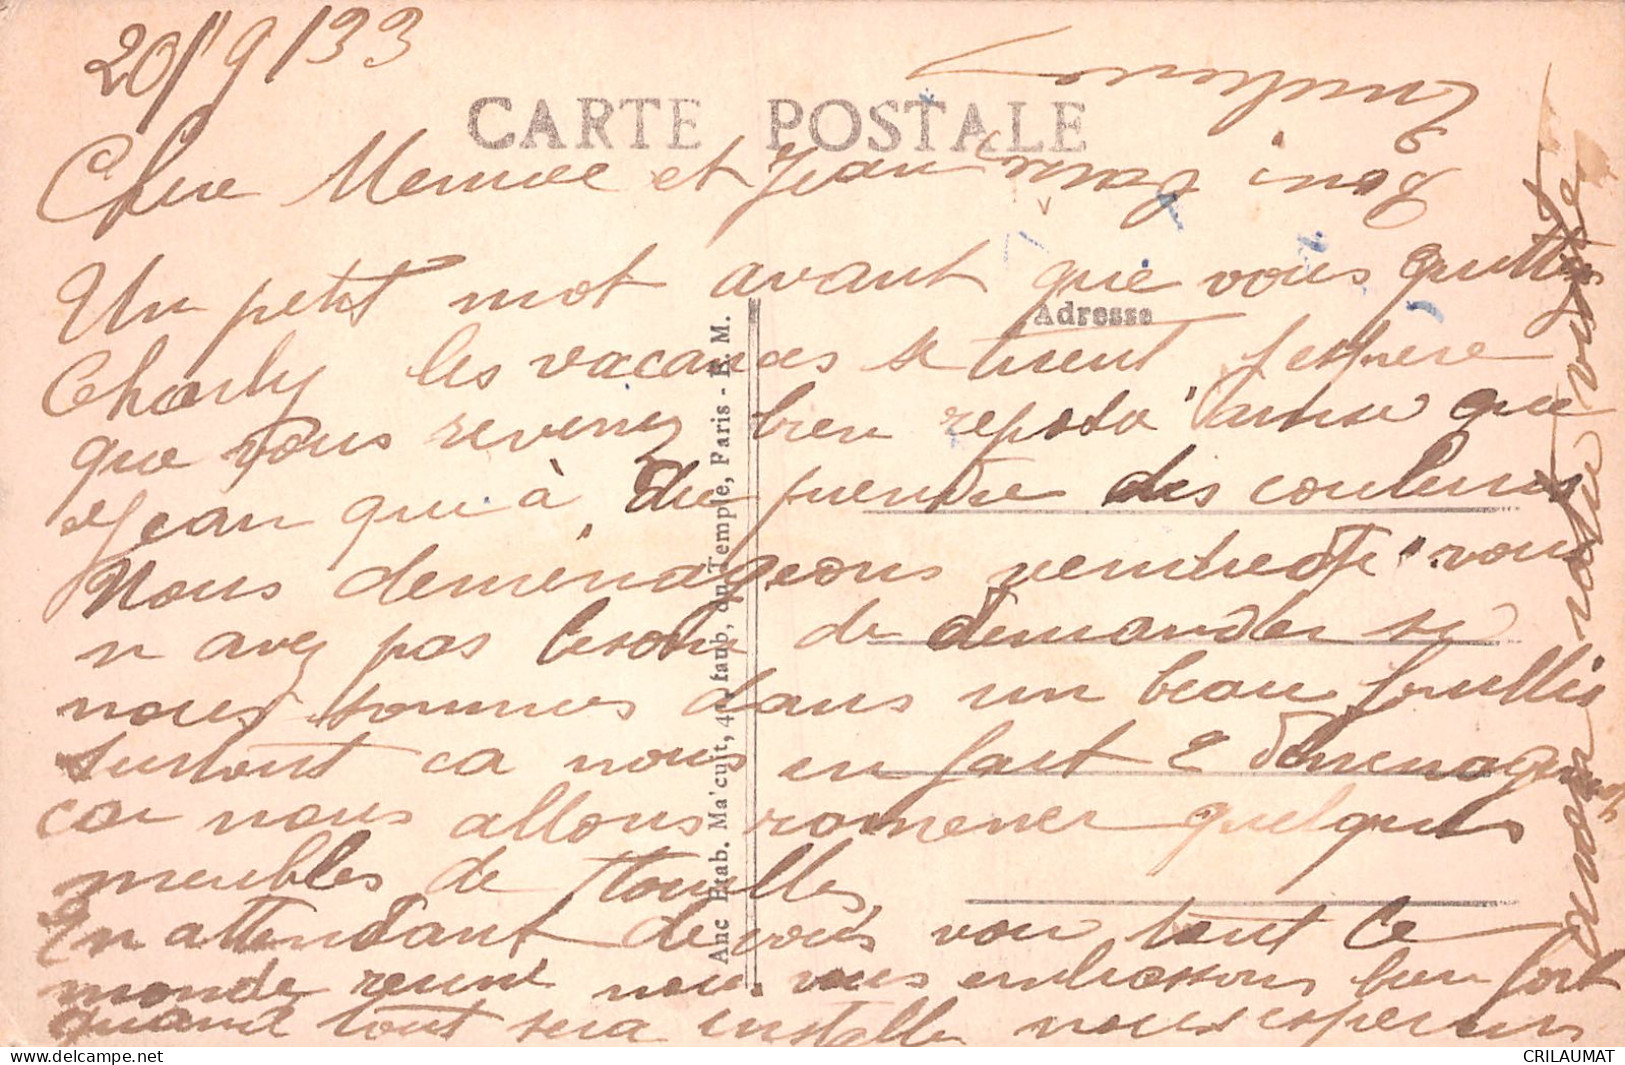 20/9/33
CARTE POSTALE
Chère Memée et Jean
Un petit mot avant que vous quittez
Adresse
Charly les vacances se tirent j espère
que vous revenez bien reposé ainsi que
Jean qui à du prendre des couleurs
Nous deménageons vendredi vous
n avez pas besoin de demander si
nous sommes dans un beau fouillis
surtout ca nous en fait 2 déménagements
car nous allons ramener quelques
meubles de
En attendant de vous voir tout le
monde reuni nous vous embrassons bien fort
quand tout sera installe nous esperons
avoir votre visite
Bons
Anc Etab. Ma'cuit, faub, du Temple, Paris - E. M.
CRILAUMAT